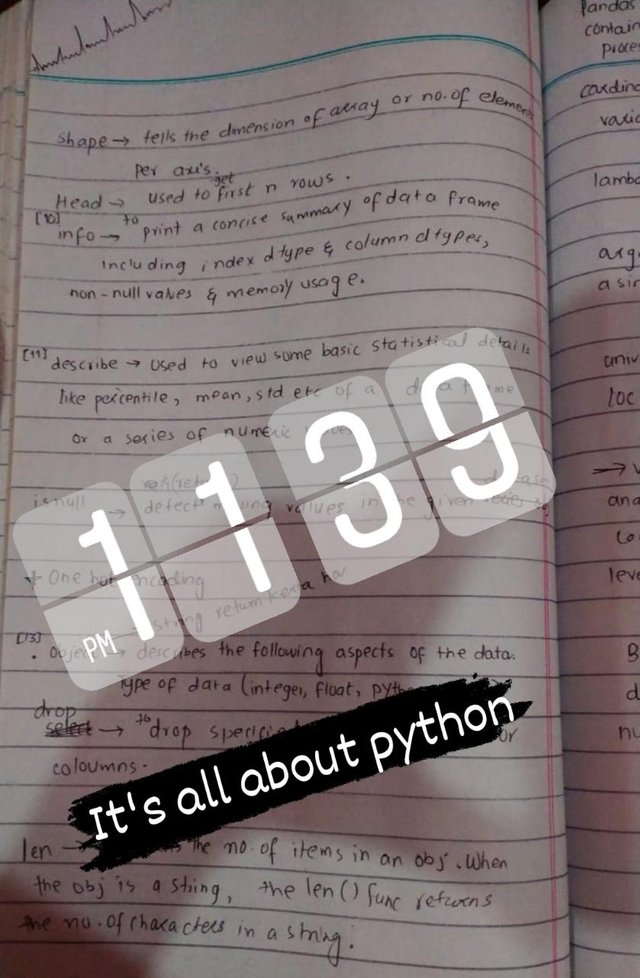 shape → tells the dimension of array or no. of element
per axis.
Head → used to get first n rows.
[10]
info → to print a concise summary of data frame
including index dtype & column dtypes,
non-null values & memory usage.
[11] describe → used to view some basic statistical details
like percentile, mean, std etc of a data frame
or a series of numeric values
is null → detect missing values in the given
+ One hot encoding
string return
[13]
. Object → describes the following aspects of the data.
Type of data (integer, float, pyth
drop
select → to drop specifie or
coloumns.
len → the no. of items in an obj. When
the obj is a string, the len() func returns
the no. of characters in a string.
11 39
PM
It's all about python
Pandas
contain
proces
cardina
lambo
arg
a sin
univ
loc
→ v
ana
leve
B
d
nu